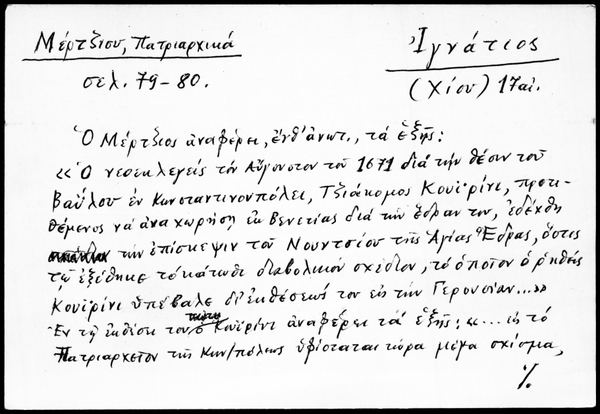 Μέρτζιου, Πατριαρχικά
σελ. 79-80.
Ἰγνάτιος
(Χίου) 17 αἰ.
Ὁ Μέρτζιος ἀναφέρει, ἔνθ' ἀνωτ., τὰ ἑξῆς:
«Ὁ νεοεκλεγείς τὸν Αὔγουστον τοῦ 1671 διὰ τὴν θέσιν τοῦ
Βαΐλου ἐν Κωνσταντινουπόλει, Τζιάκομος Κουϊρίνι, προτι-
θέμενος νὰ ἀναχωρήσῃ ἐκ Βενετίας διὰ τὴν ἕδραν του, ἐδέχθη
τὴν ἐπίσκεψιν τοῦ Νουντσίου τῆς Ἁγίας Ἕδρας, ὅστις
τῷ ἐξέθηκε τὸ κάτωθι διαβολικόν σχέδιον, τὸ ὁποῖον ὁ ρηθείς
Κουϊρίνι ὑπέβαλε δι' ἐκθέσεώς του εἰς τὴν Γερουσίαν...»
Ἐν τῇ ἐκθέσει του ὁ Κουϊρίνι ἀναφέρει τὰ ἑξῆς: «... εἰς τὸ
Πατριαρχεῖον τῆς Κων/πόλεως ὑφίσταται τώρα μέγα σχίσμα,
./.